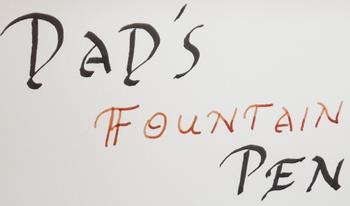 DAD'S
FOUNTAIN
PEN